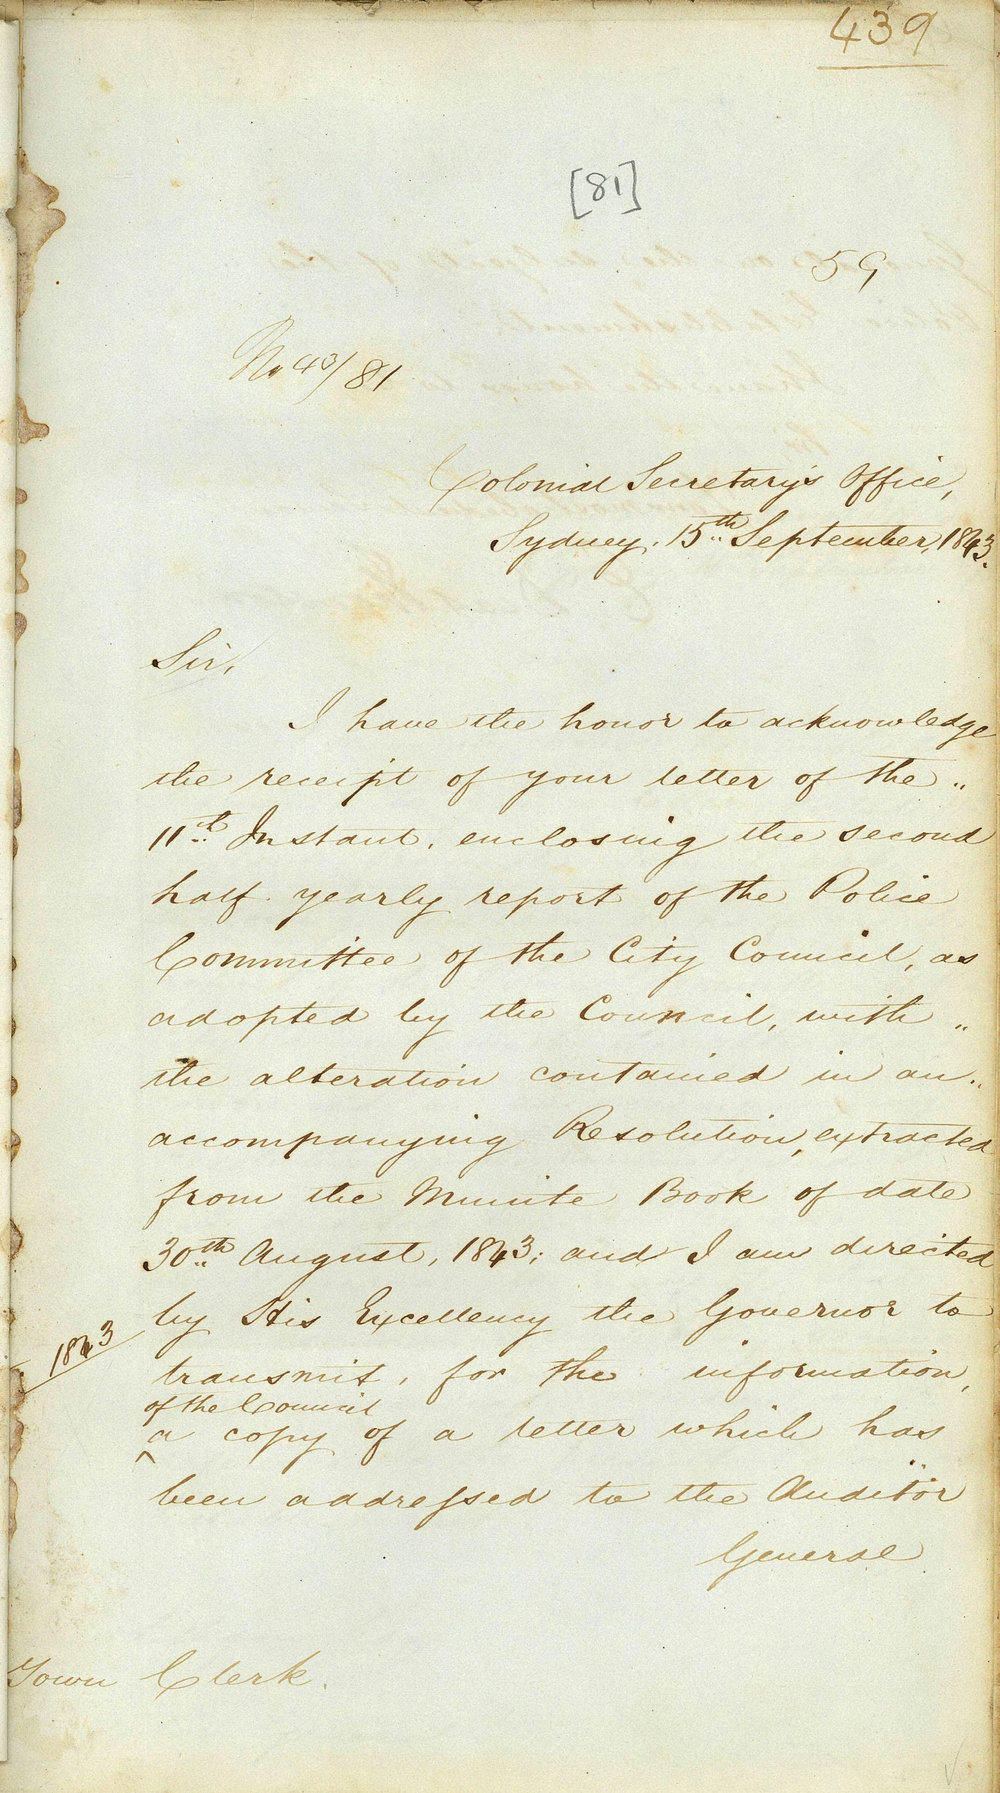 439
[81]
59
No 43/81
Colonial Secretary's Office,
Sydney, 15th September, 1843.
Sir,
I have the honor to acknowledge
the receipt of your letter of the
11th Instant, enclosing the second
half yearly report of the Police
Committee of the City Council, as
adopted by the Council, with
the alteration contained in an
accompanying Resolution, extracted
from the Minute Book of date
30th August, 1843; and I am directed
by His Excellency the Governor to
1843
transmit, for the information,
of the Council
a copy of a letter which has
been addressed to the Auditor
General
Town Clerk.